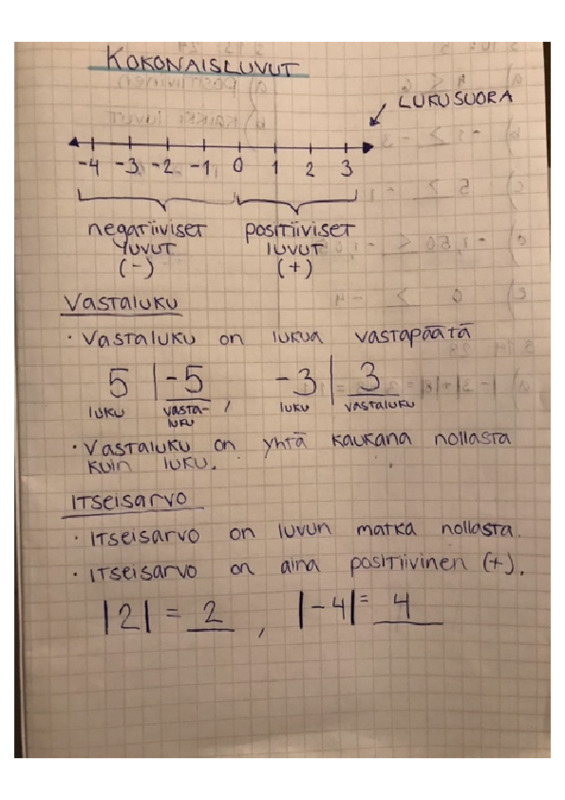 KOKONAISLUVUT
LUKUSUORA
-4 -3 -2 -1 0 1 2 3
negatiiviset positiiviset
luvut luvut
(-) (+)
Vastaluku
· Vastaluku on lukua vastapäätä
5 | -5 , -3 | 3
luku vasta- luku vastaluku
luku
· Vastaluku on yhtä kaukana nollasta
kuin luku.
Itseisarvo
· Itseisarvo on luvun matka nollasta.
· Itseisarvo on aina positiivinen (+).
|2| = 2 , |-4| = 4